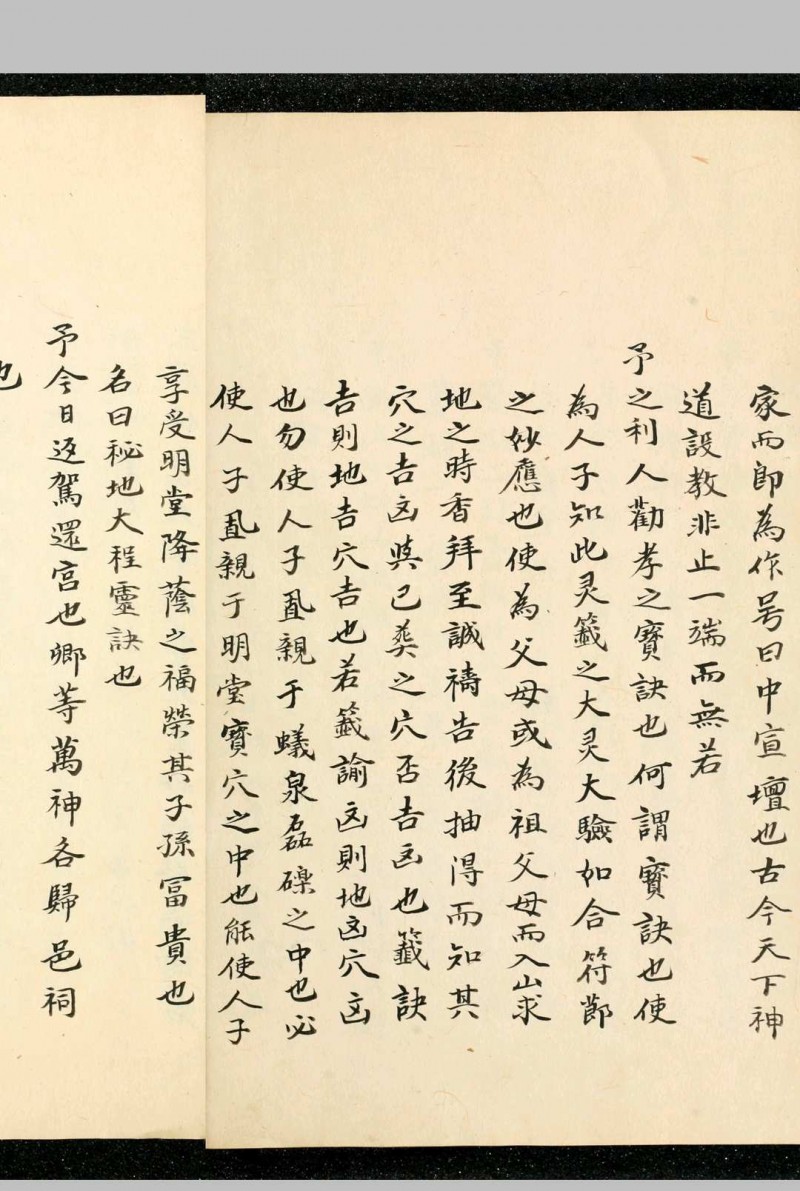 家而即為作号曰中宣壇也古今天下神
道設教非止一端而無若
予之利人勸孝之寶訣也何謂寶訣也使
為人子知此灵籤之大灵大驗如合符節
之妙應也使為父母或為祖父母而入山求
地之時香拜至誠禱告後抽得而知其
穴之吉凶與已葬之穴否吉凶也籤訣
吉則地吉穴吉也若籤諭凶則地凶穴凶
也勿使人子置親于蟻泉磊磔之中也必
使人子置親于明堂寶穴之中也能使人子
享受明堂降蔭之福榮其子孫冨貴也
名曰秘地大程靈訣也
予今日返駕還宮也卿等萬神各歸邑祠
也